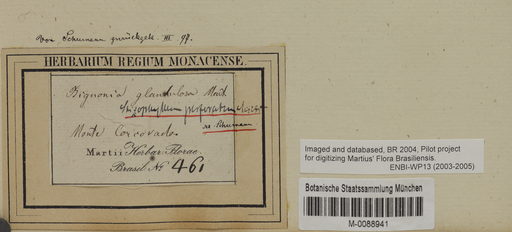 von Schumann zurückgek. III 97.
HERBARIUM REGIUM MONACENSE.
Bignonia glandulosa Mart
Stizophyllum perforatum
Monte Corcovado.
Schumann
Martii Herbar. Florae
Brasil. No 461
Imaged and databased, BR 2004, Pilot project
for digitizing Martius' Flora Brasiliensis.
ENBI-WP13 (2003-2005)
Botanische Staatssammlung München
M-0088941